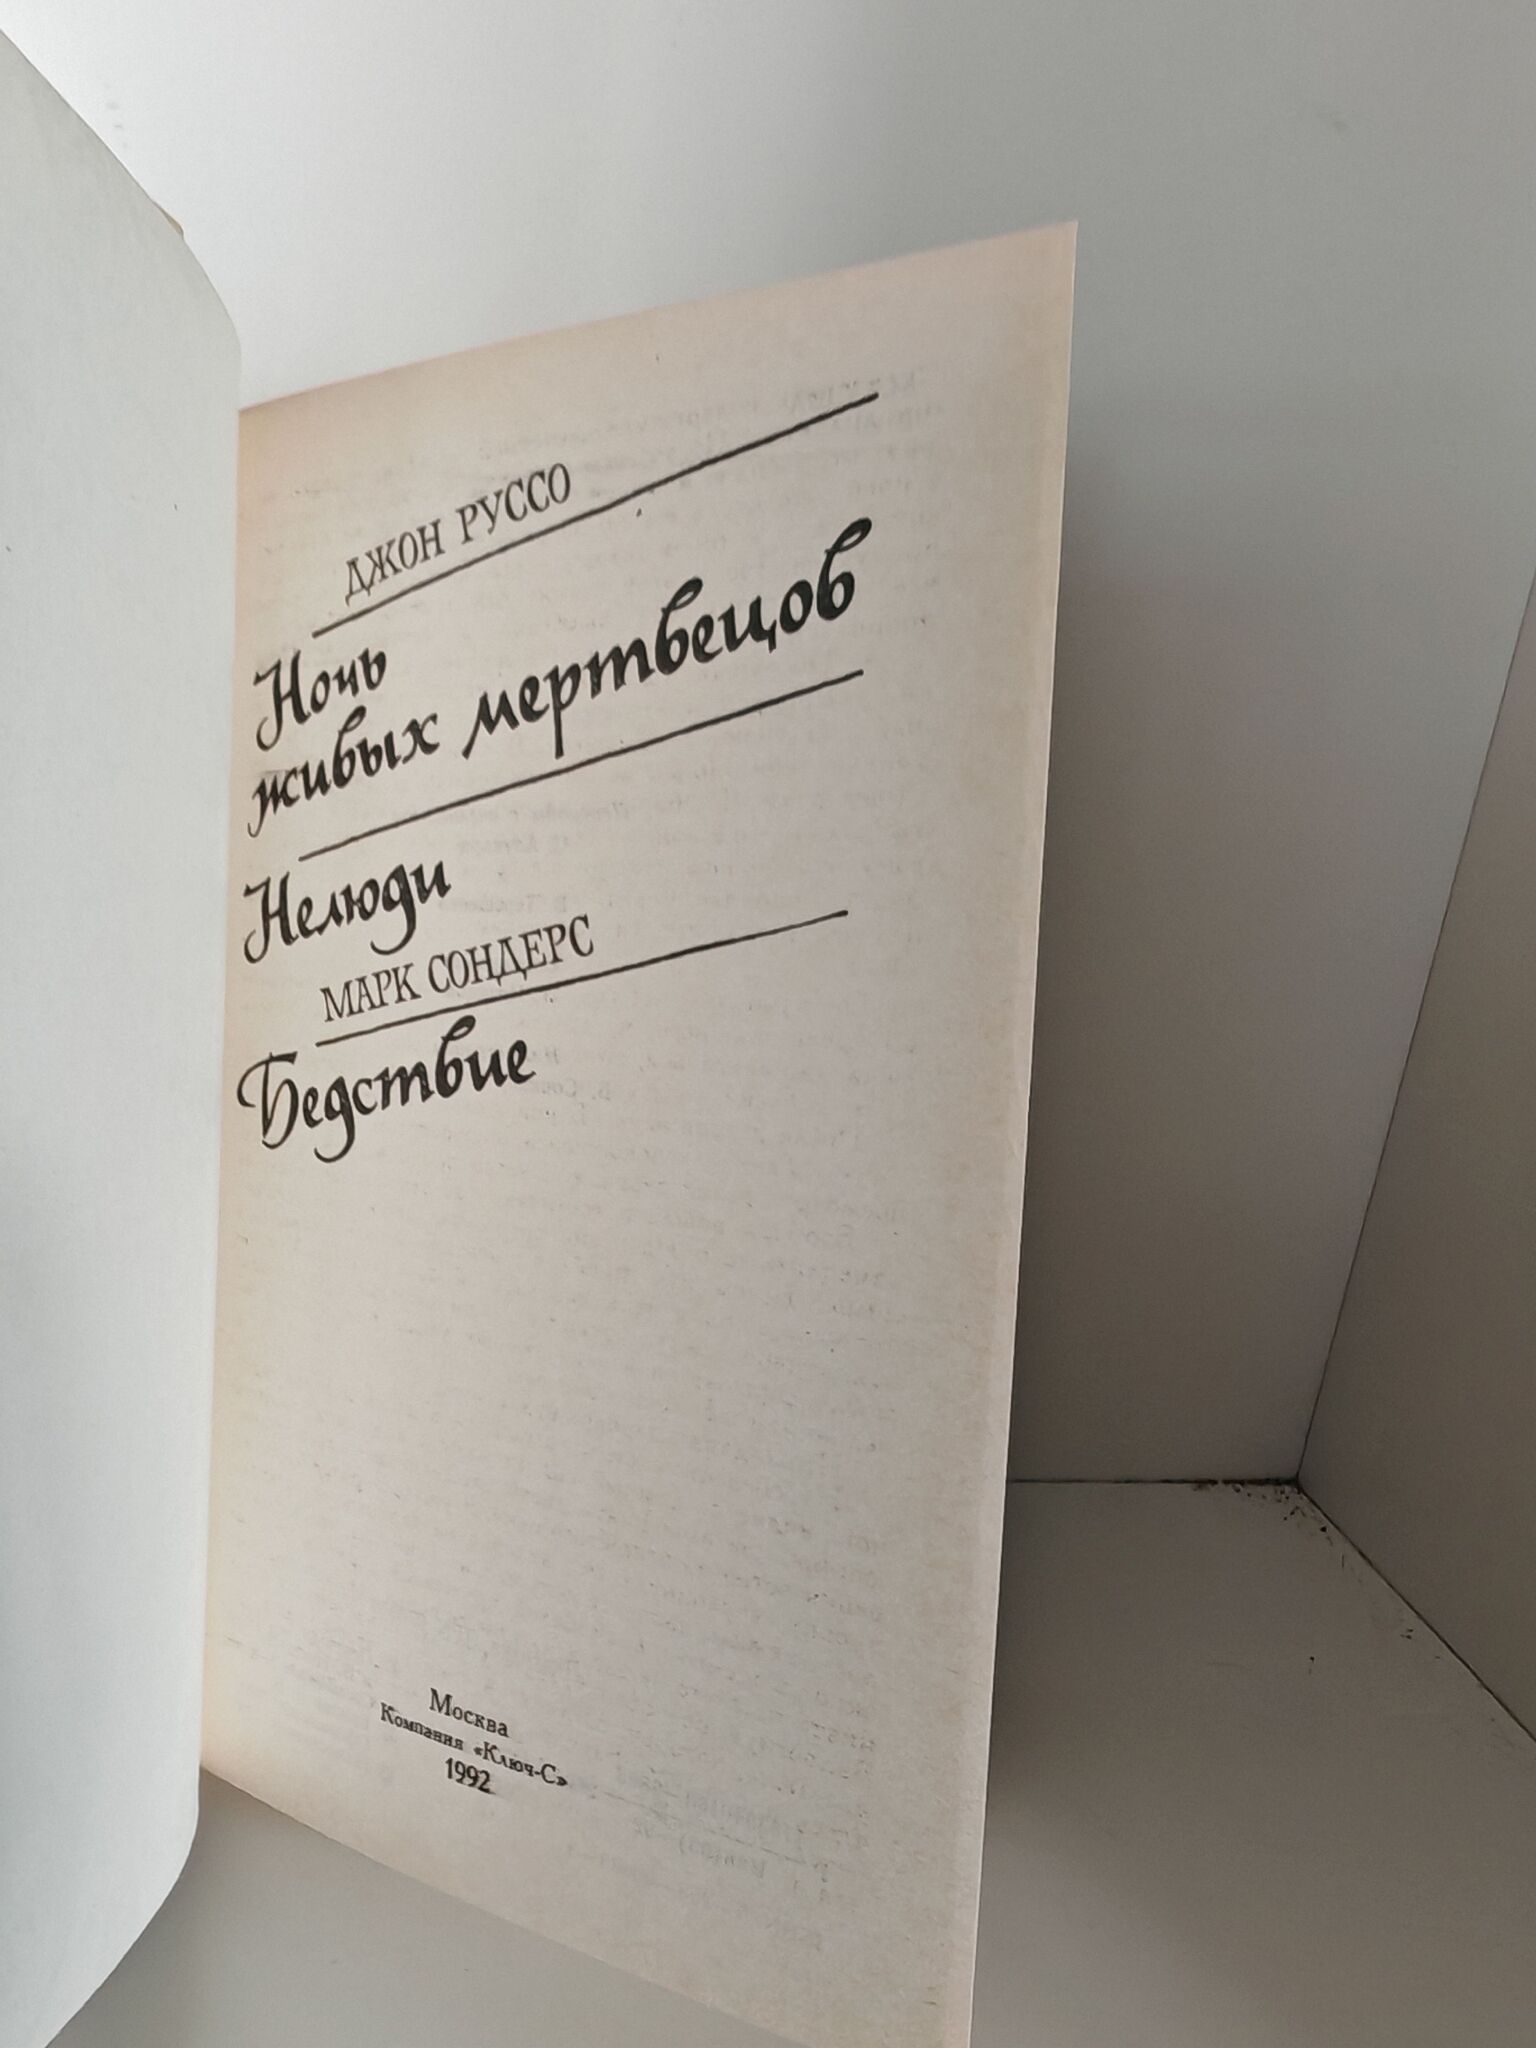 ДЖОН РУССО
Ночь
живых мертвецов
Нелюди
МАРК СОНДЕРС
Бедствие
Москва
Компания «Ключ-С»
1992